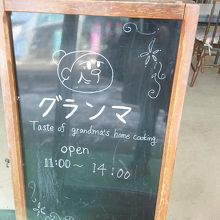 グランマ
Taste of grandma's home cooking
open
11:00～14:00